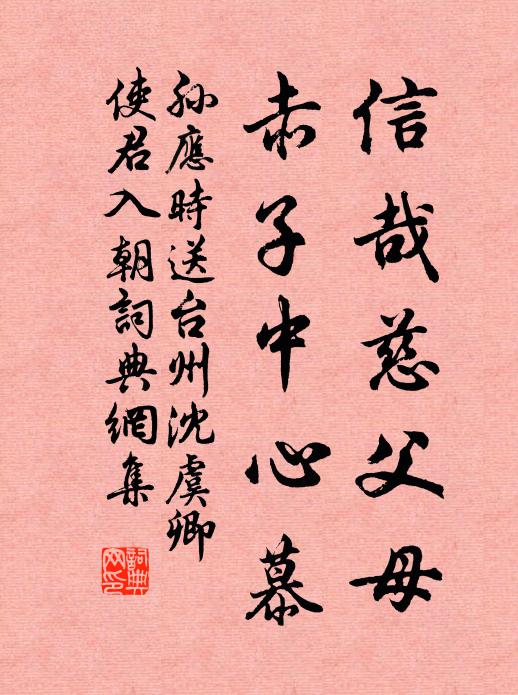 信哉慈父母
赤子中心慕
孙應時送台州沈虞卿
使君入朝詞典網集
詞典
网印